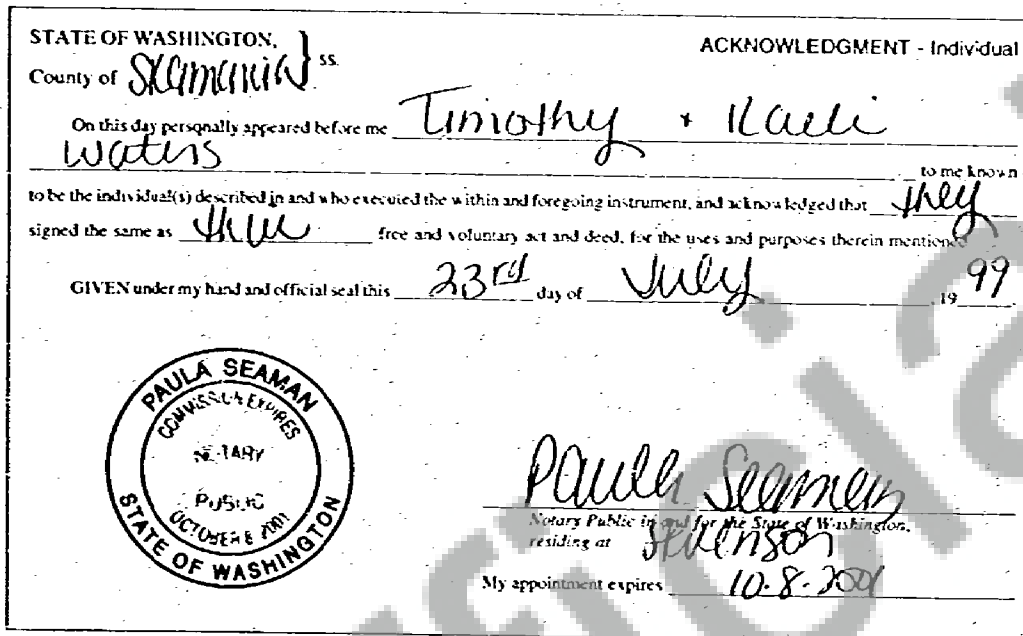 STATE OF WASHINGTON, } ss.
ACKNOWLEDGMENT - Individual
County of Skamania
On this day personally appeared before me Timothy + Kaeli
Waters
to me known
to be the individual(s) described in and who executed the within and foregoing instrument, and acknowledged that they
signed the same as their free and voluntary act and deed, for the uses and purposes therein mentioned
GIVEN under my hand and official seal this 23rd day of July, 19 99
PAULA SEAMAN
COMMISSION EXPIRES
NOTARY
PUBLIC
OCTOBER 8 2001
STATE OF WASHINGTON
Paula Seaman
Notary Public in and for the State of Washington,
residing at Stevenson
My appointment expires 10-8-2001